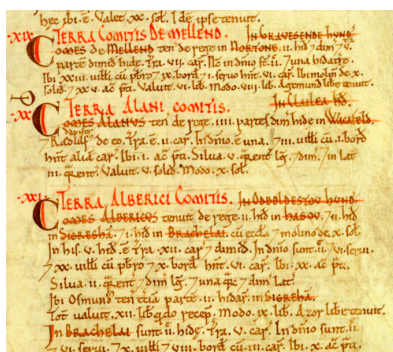 hec ibi.ē. Valet. xx. sol. Idē ipse tenuit.
.XIX. TERRA COMITIS DE MELLEND. IN GRAVESENDE HUND.
COMES de MELLEND ten de rege in NORTONE. ii. hid 7 dim 7 v.
partē dimid hidę. Tra. vii. car. In dnio sē. ii. 7 una hida
Ibi xxiii. uilli cū pbro 7 x. bord 7 i. seruo hnt. vi. car. Ibi molin de x.
solid. 7 xx v. ac pti. Valuit. vi. lib. Modo. viii. lib. Agemund libe tenuit.
.XX. TERRA ALANI COMITIS. IN CLAILEA HD.
COMES ALANUS ten de rege. iiii. partē dim hidę in WACAFELD.
7 Radulf de eo. Tra. ē. ii. car. In dnio. ē una. 7 iii. uilli cū. i. bord
hnt alia car. Ibi. i. ac pti. Silua. v. qrent lg. 7 dim. in lat
iii. qrent. Valuit. v. solid. Modo. x. sol.
.XXI. TERRA ALBERICI COMITIS. IN ODBOLDESTOU HUND.
COMES ALBERICUS tenuit de rege. ii. hid in HASOU. 7 i. hid
in SIGRESHA. 7 i. hid in BRACHELAI. cū eccla 7 molino de x. sol.
In his. v. hid. ē Tra. xii. car 7 dimid. In dnio sunt. ii. 7 vi. serui.
7 xx. uilli cū pbro 7 x. bord hnt. vi. car. Ibi. xx. ac pti.
Silua. ii. qrent 7 dim lg. 7 una qr 7 dim lat.
Ibi Osmund ten ei ii. hidar in SIGREHA.
Tot valuit. xii. lib qdo recep. Modo. ix. lib. Azor libe tenuit.
In BRACHELAI sunt. ii. hidę. Tra. v. car. In dnio sunt. ii
7 vi. serui. 7 x. uilli 7 viii. bord cū. iii. car. Ibi x. ac pti.